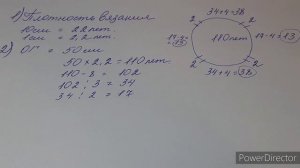 1) Плотность вязания
10см = 22 пет.
1см = 2,2 пет.
2) ОГ = 50см
50 x 2,2 = 110 пет
110 - 8 = 102
102 : 3 = 34
34 : 2 = 17
34+4=38
2
2
17-4=13
110 пет
17-4=13
2
2
34+4=38
PowerDirector